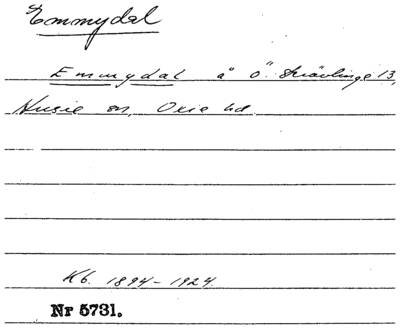 Emmydal
Emmydal å Ö. Skrävlinge 13,
Husie sn, Oxie hd.
Kb. 1894-1924.
Nr 5731.